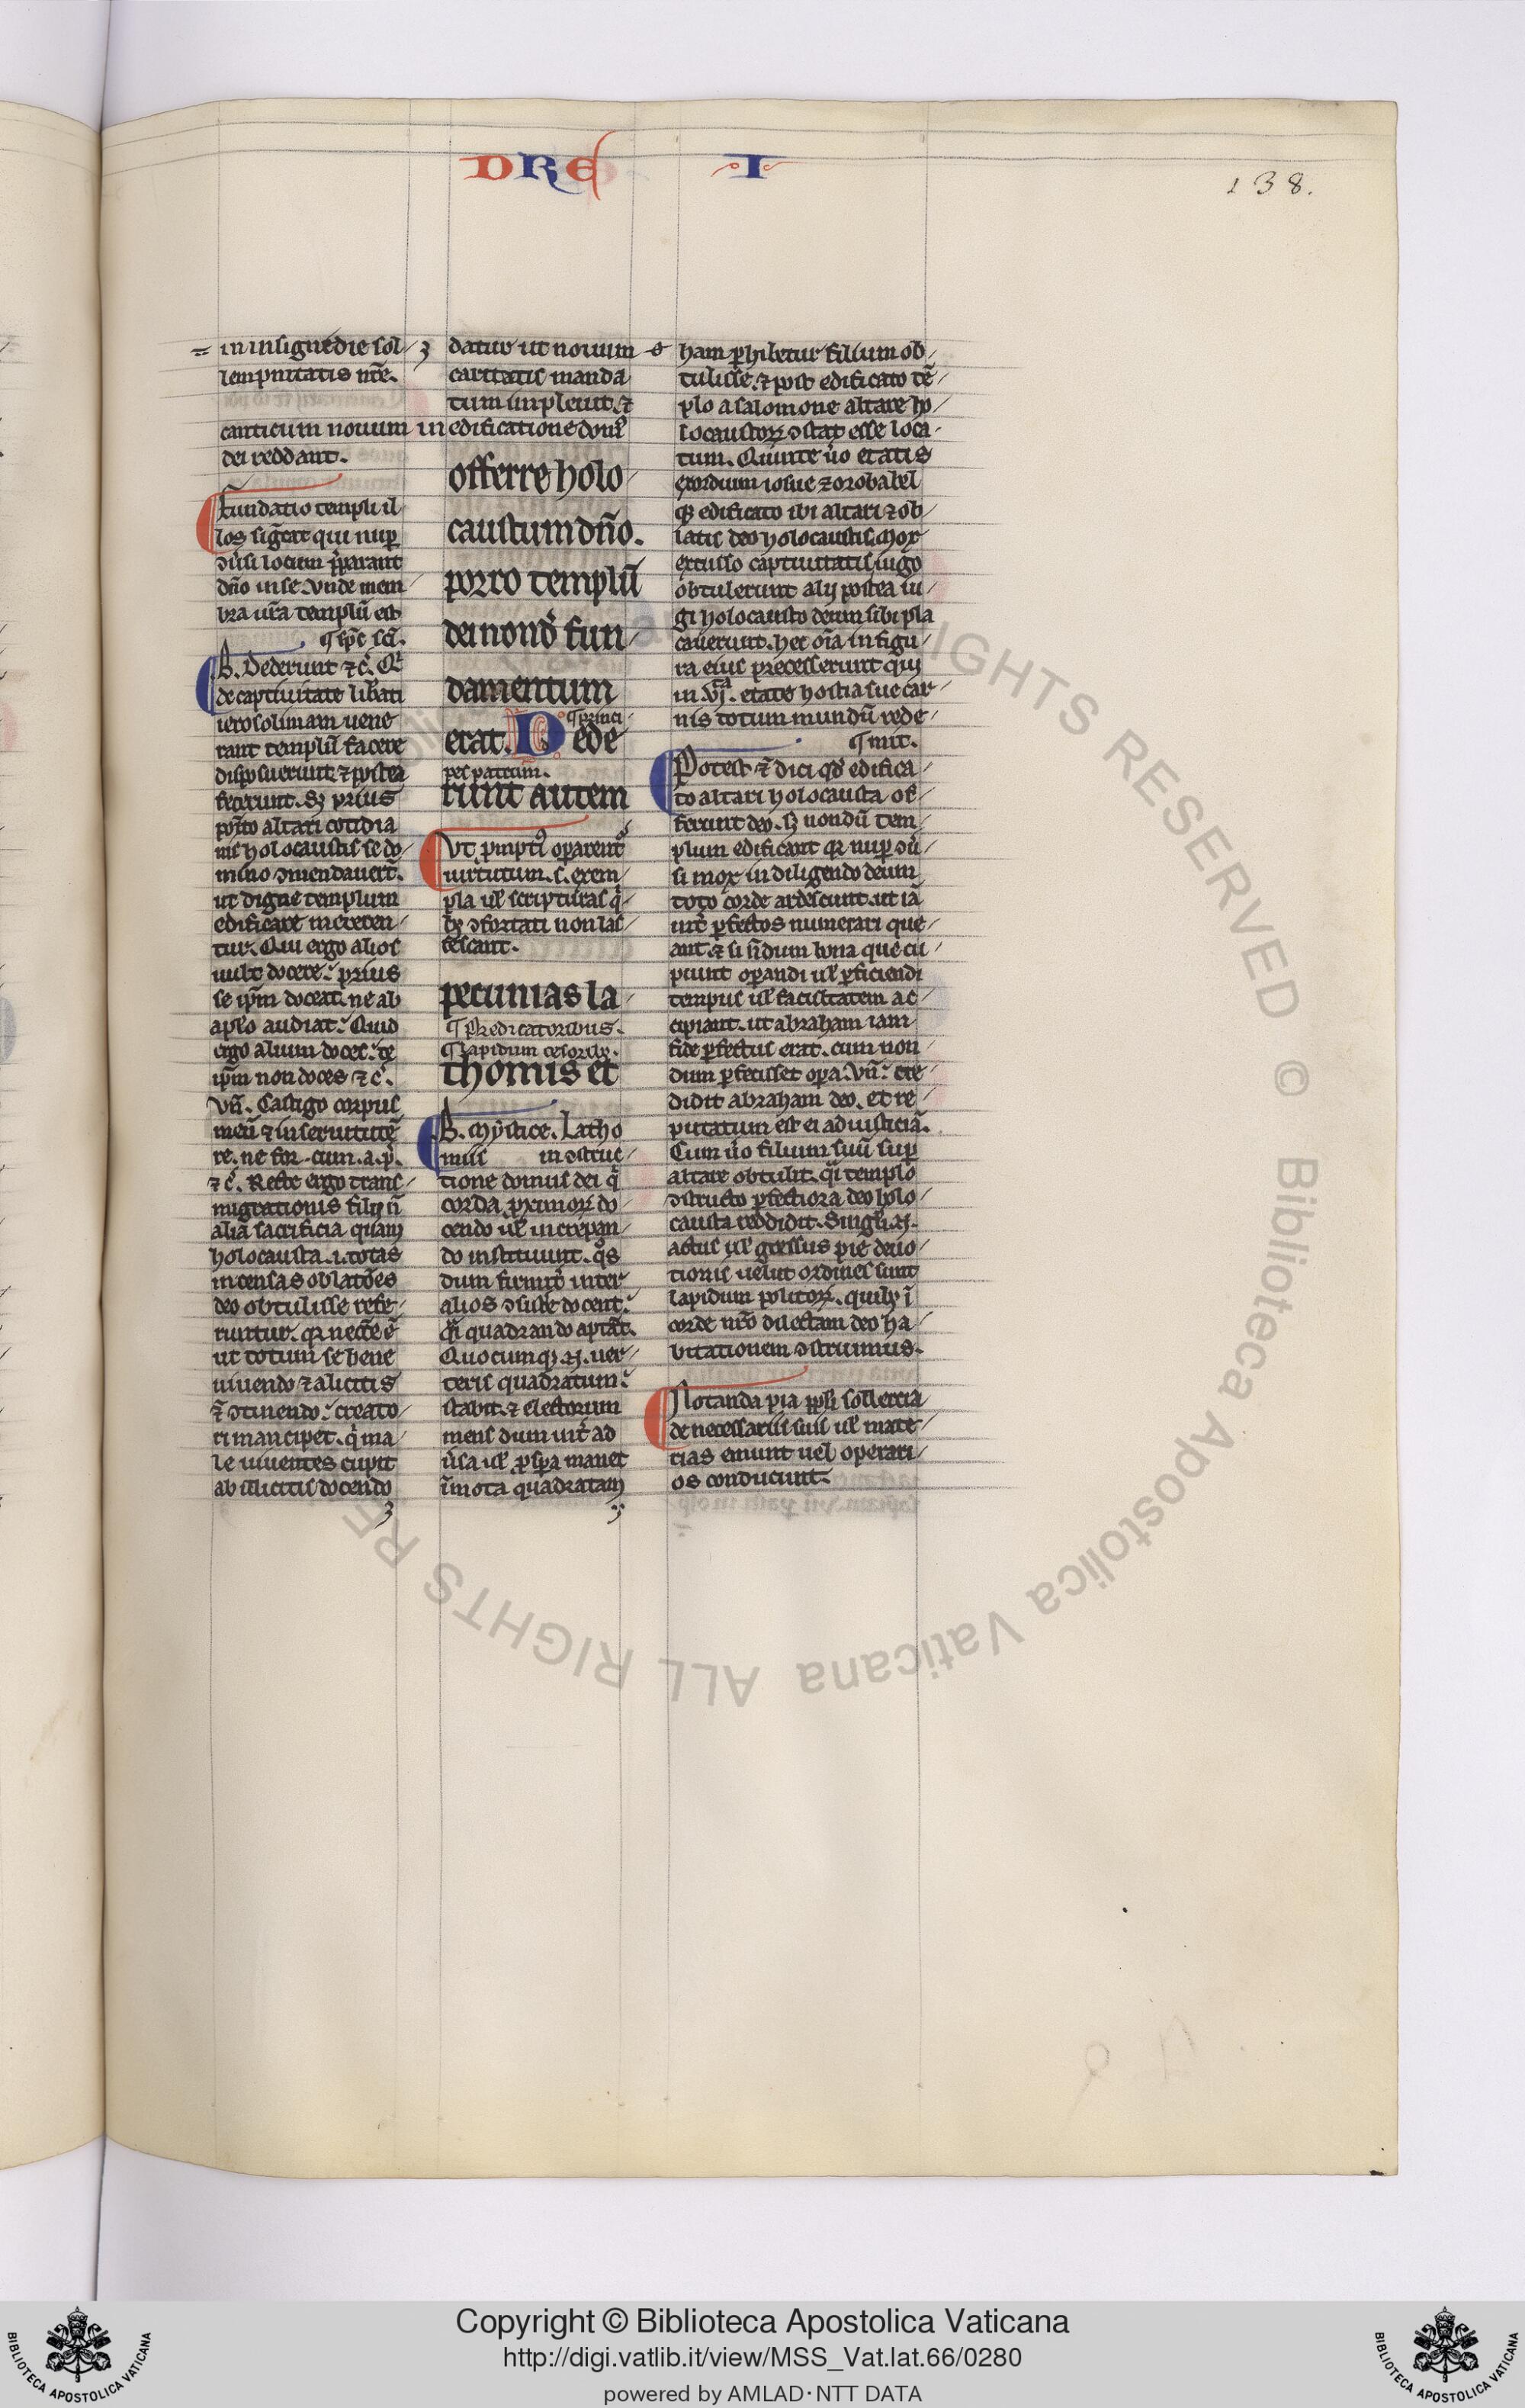 DRE I
138.
in insigne die sol
lempnitatis nr̃e.
canticum nouum in
dei reddant.
Fundatio templi il
los sig̃cat qui nup̱
ↄũsi locum p̃parant
dño in se. vnde mem
bra ur̃a templũ est
¶ sp̃c sc̃i.
B. Dederunt ⁊ c̃. Qͥ
de captiuitate lib̃ati
ierosolimam uene
rant templũ facere
disposuerunt. ⁊ postea
fecerunt. Sꝫ prius
po̱ito altari cotidia
nis holocaustis se do
mino ↄmendauert̃.
ut digne templum
edificare mereren
tur. Qui ergo alios
uult docere: prius
se ip̃m doceat. ne ab
ap̃lo audiat: Quid
ergo alium doces: te
ip̃m non doces ⁊ c̃.
Vñ. Castigo corpus
meũ ⁊ in seruitutẽ
re. ne for. cum. a. p̃.
⁊ c̃. Recte ergo trans
migrationis filij ñ
alia sacrificia quam
holocausta .i. totas
incensas oblatões
deo obtulisse refe
runtur. qꝛ necc̃e ẽ
ut totum se bene
uiuendo ⁊ alicitis
⁊̃ ↄtinendo: creato
ri mancipet. qͥ ma
le uiuentes cupit
ab illicitis docendo
datur ut nouum
caritatis manda
tum impleuit. ⁊
edificatione domꝰ
offerre holo
caustum dño.
porro templũ
dei nond̃ fun
damentum
erat. Dede
¶ princi
pes patrum.
runt autem
Vt p̱mptiꝰ op̱arentͬ
uirtutum .s. exem
pla ul̃ scripturas qͥ
bꝫ ↄfortati non las
sescant.
pecunias la
¶ Predicatoribus.
¶ Lapidum cesoribꝫ.
thomis et
B. Mystice. Latho
mus in ↄstruc
tione domus dei qͥ
corda p̱ximoꝝ do
cendo ul̃ increpan
do instituunt. qͦs
dum firmit̃ inter
alios ↄsiste docent:
qͣi quadrando aptãt.
Quocumqꝫ .n. uer
teris quadratum:
stabit. ⁊ electorum
mens dum uir̃ ad
ũsa ul̃ p̱sp̱a manet
ĩmota quadratam
ham p̱hibetur filium ob
tulisse. ⁊ post edificato tẽ
plo a salomone altare ho
locaustoꝝ ↄstat esse loca
tum. Quinte ũo etatis
exordium iosue ⁊ zorobabel
qꝫ edificato ibi altari ⁊ ob
latis deo holocaustis. mox
excusso captiuitatis iugo
obtulerunt alij postea iu
gi holocausto deum sibi pla
cauerunt. hec oĩa in figu
ra eius precesserunt qui
in vjͣ. etate hostia sue car
nis totum mundũ rede
¶ mit.
Potest ⁊̃ dici qd̃ edifica
to altari holocausta of
ferunt deo. sꝫ nondũ tem
plum edificant qꝛ nup̱ ↄũ
si mox in diligendo deum
toto corde ardescunt. ut iã
int̃ p̱fectos numerari que
ant ⁊ si ñdum bona que cu
piunt op̱andi ul̃ p̱ficiendi
tempus ul̃ facultatem ac
cipiant. ut abraham iam
fide p̱fectus erat. cum non
dum p̱fecisset op̱a. Vñ: cre
didit abraham deo. et re
putatum est ei ad iusticiã.
Cum ũo filium suũ sup̱
altare obtulit. qͣi templo
ↄstructo p̱fectiora deo holo
causta reddidit. Singl̃i .n.
actus ul̃ gressus pie deuo
tionis uelut ordines sunt
lapidum politoꝝ. quibꝫ ĩ
corde nr̃o dilectam deo ha
bitationem ↄstruimus.
Notanda pia pp̱li sollercia
de necessariis suis ul̃ mate
rias emunt uel operari
os conducunt.
Copyright © Biblioteca Apostolica Vaticana
http://digi.vatlib.it/view/MSS_Vat.lat.66/0280
powered by AMLAD·NTT DATA
BIBLIOTECA APOSTOLICA VATICANA
BIBLIOTECA APOSTOLICA VATICANA
© Biblioteca Apostolica Vaticana ALL RIGHTS RESERVED